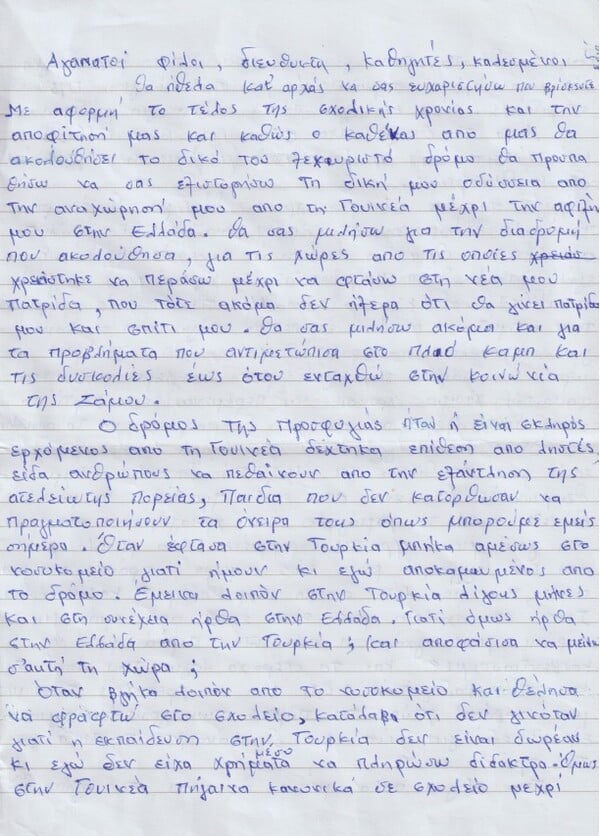 Αγαπατοί φίλοι, διευθυντή, καθηγητές, καλεσμένοι
θα ήθελα κατ' αρχάς να σας ευχαριστήσω που βρίσκεστε
Με αφορμή το τέλος της σχολικής χρονίας και την
αποφίτηση μας και καθώς ο καθένας απο μας θα
ακολουθήσει το δικό του ξεχωριστό δρόμο θα προσπα
θήσω να σας εξιστορήσω τη δική μου οδύσσεια απο
την αναχώρηση μου απο τη Γουινέα μέχρι την αφιξη
μου στην Ελλάδα. θα σας μιλήσω για την διαδρομή
που ακολούθησα, για τις χώρες απο τις οποίες χρειασ
χρειάστηκε να περάσω μέχρι να φτάσω στη νέα μου
πατρίδα, που τότε ακόμα δεν ήξερα ότι θα γίνει πατρίδα
μου και σπίτι μου. θα σας μιλησω ακόμα και για
τα προβλήματα που αντιμετώπισα στο καμπ και
τις δυσκολίες έως ότου ενταχθώ στην κοινωνία
της Σάμου.
Ο δρόμος της προσφυγιάς ήταν ή είναι σκληρός
ερχόμενος απο τη Γουινέα δέχτηκα επίθεση απο ληστές,
είδα ανθρώπους να πεθαίνουν απο την εξάντληση της
ατελείωτης πορείας, παιδια που δεν κατόρθωσαν να
πραγματοποιήσουν τα όνειρα τους όπως μπορούμε εμείς
σήμερα. Όταν έφτασα στην Τουρκία μπήκα αμέσως στο
νοσοκομείο γιατί ήμουν κι εγώ αποκαμωμένος απο
το δρόμο. Έμεινα λοιπόν στην Τουρκία λίγους μήνες
και στη συνέχεια ήρθα στην Ελλάδα. Γιατί όμως ήρθα
στην Ελλάδα απο την Τουρκία ; και αποφάσισα να μείνω
σ'αυτή τη χώρα ;
Όταν βγήκα λοιπόν απο το νοσοκομείο και θέλησα
να γραφτώ στο σχολείο, κατάλαβα ότι δεν γινόταν
γιατί η εκπαίδευση στην Τουρκία δεν είναι δωρεάν
κι εγώ δεν είχα χρήματα να πληρώσω δίδακτρα. Όμως
στην Γουινέα πήγαινα κανονικά σε σχολείο μεχρι